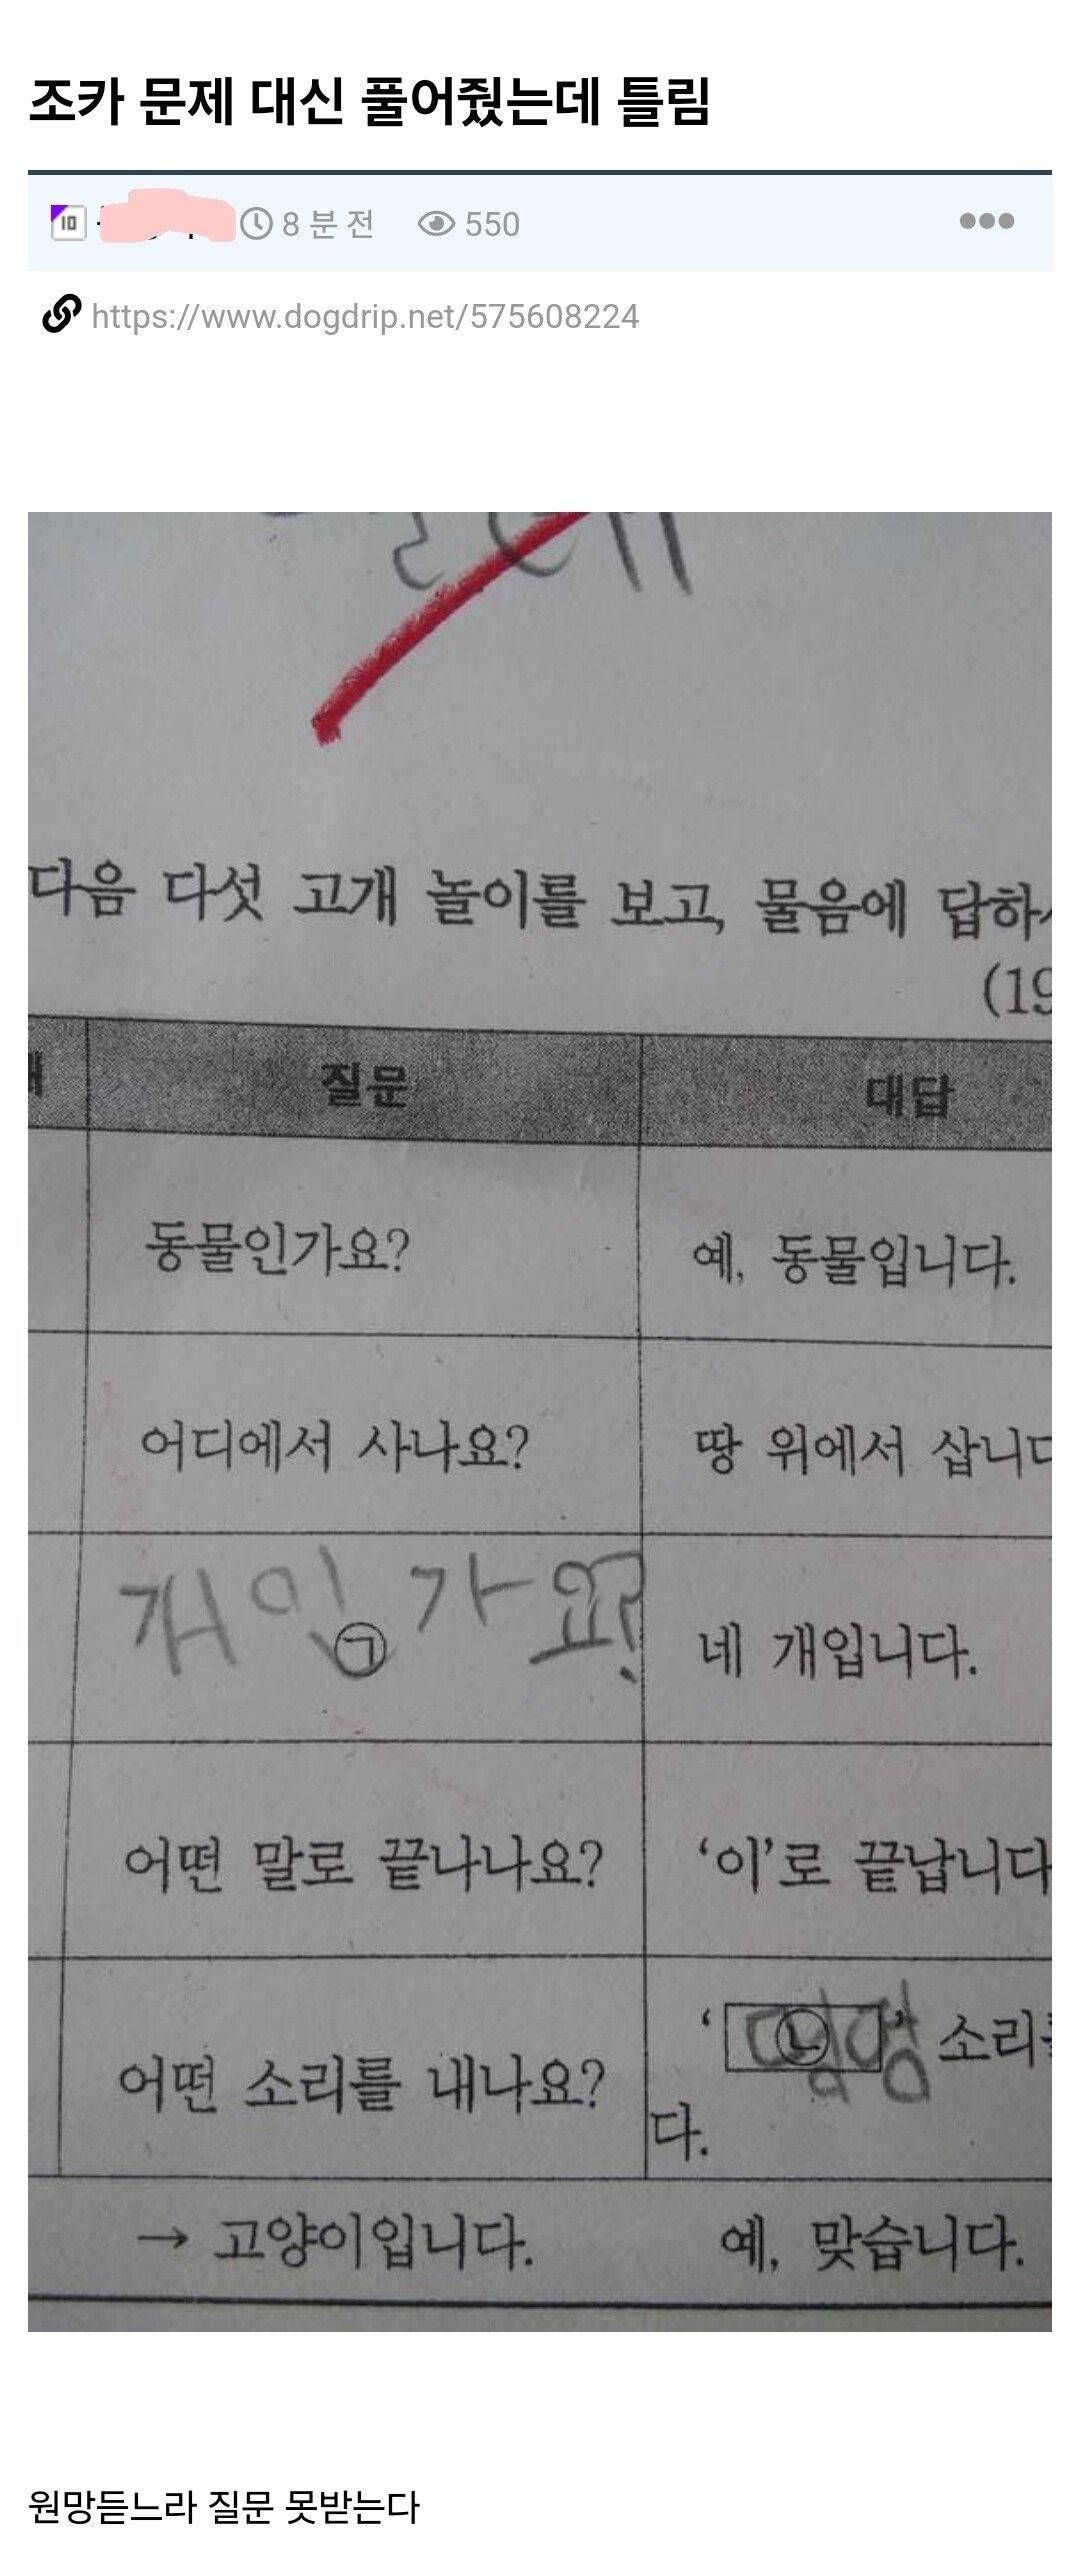 조카 문제 대신 풀어줬는데 틀림
10 8 분 전 550
https://www.dogdrip.net/575608224
다음 다섯 고개 놀이를 보고, 물음에 답하
(19
질문 대답
동물인가요? 예, 동물입니다.
어디에서 사나요? 땅 위에서 삽니다
개인가요? 네 개입니다.
㉠
어떤 말로 끝나나요? ‘이’로 끝납니다
어떤 소리를 내나요? ‘멍멍’ 소리를
㉡
다.
→ 고양이입니다. 예, 맞습니다.
원망듣느라 질문 못받는다